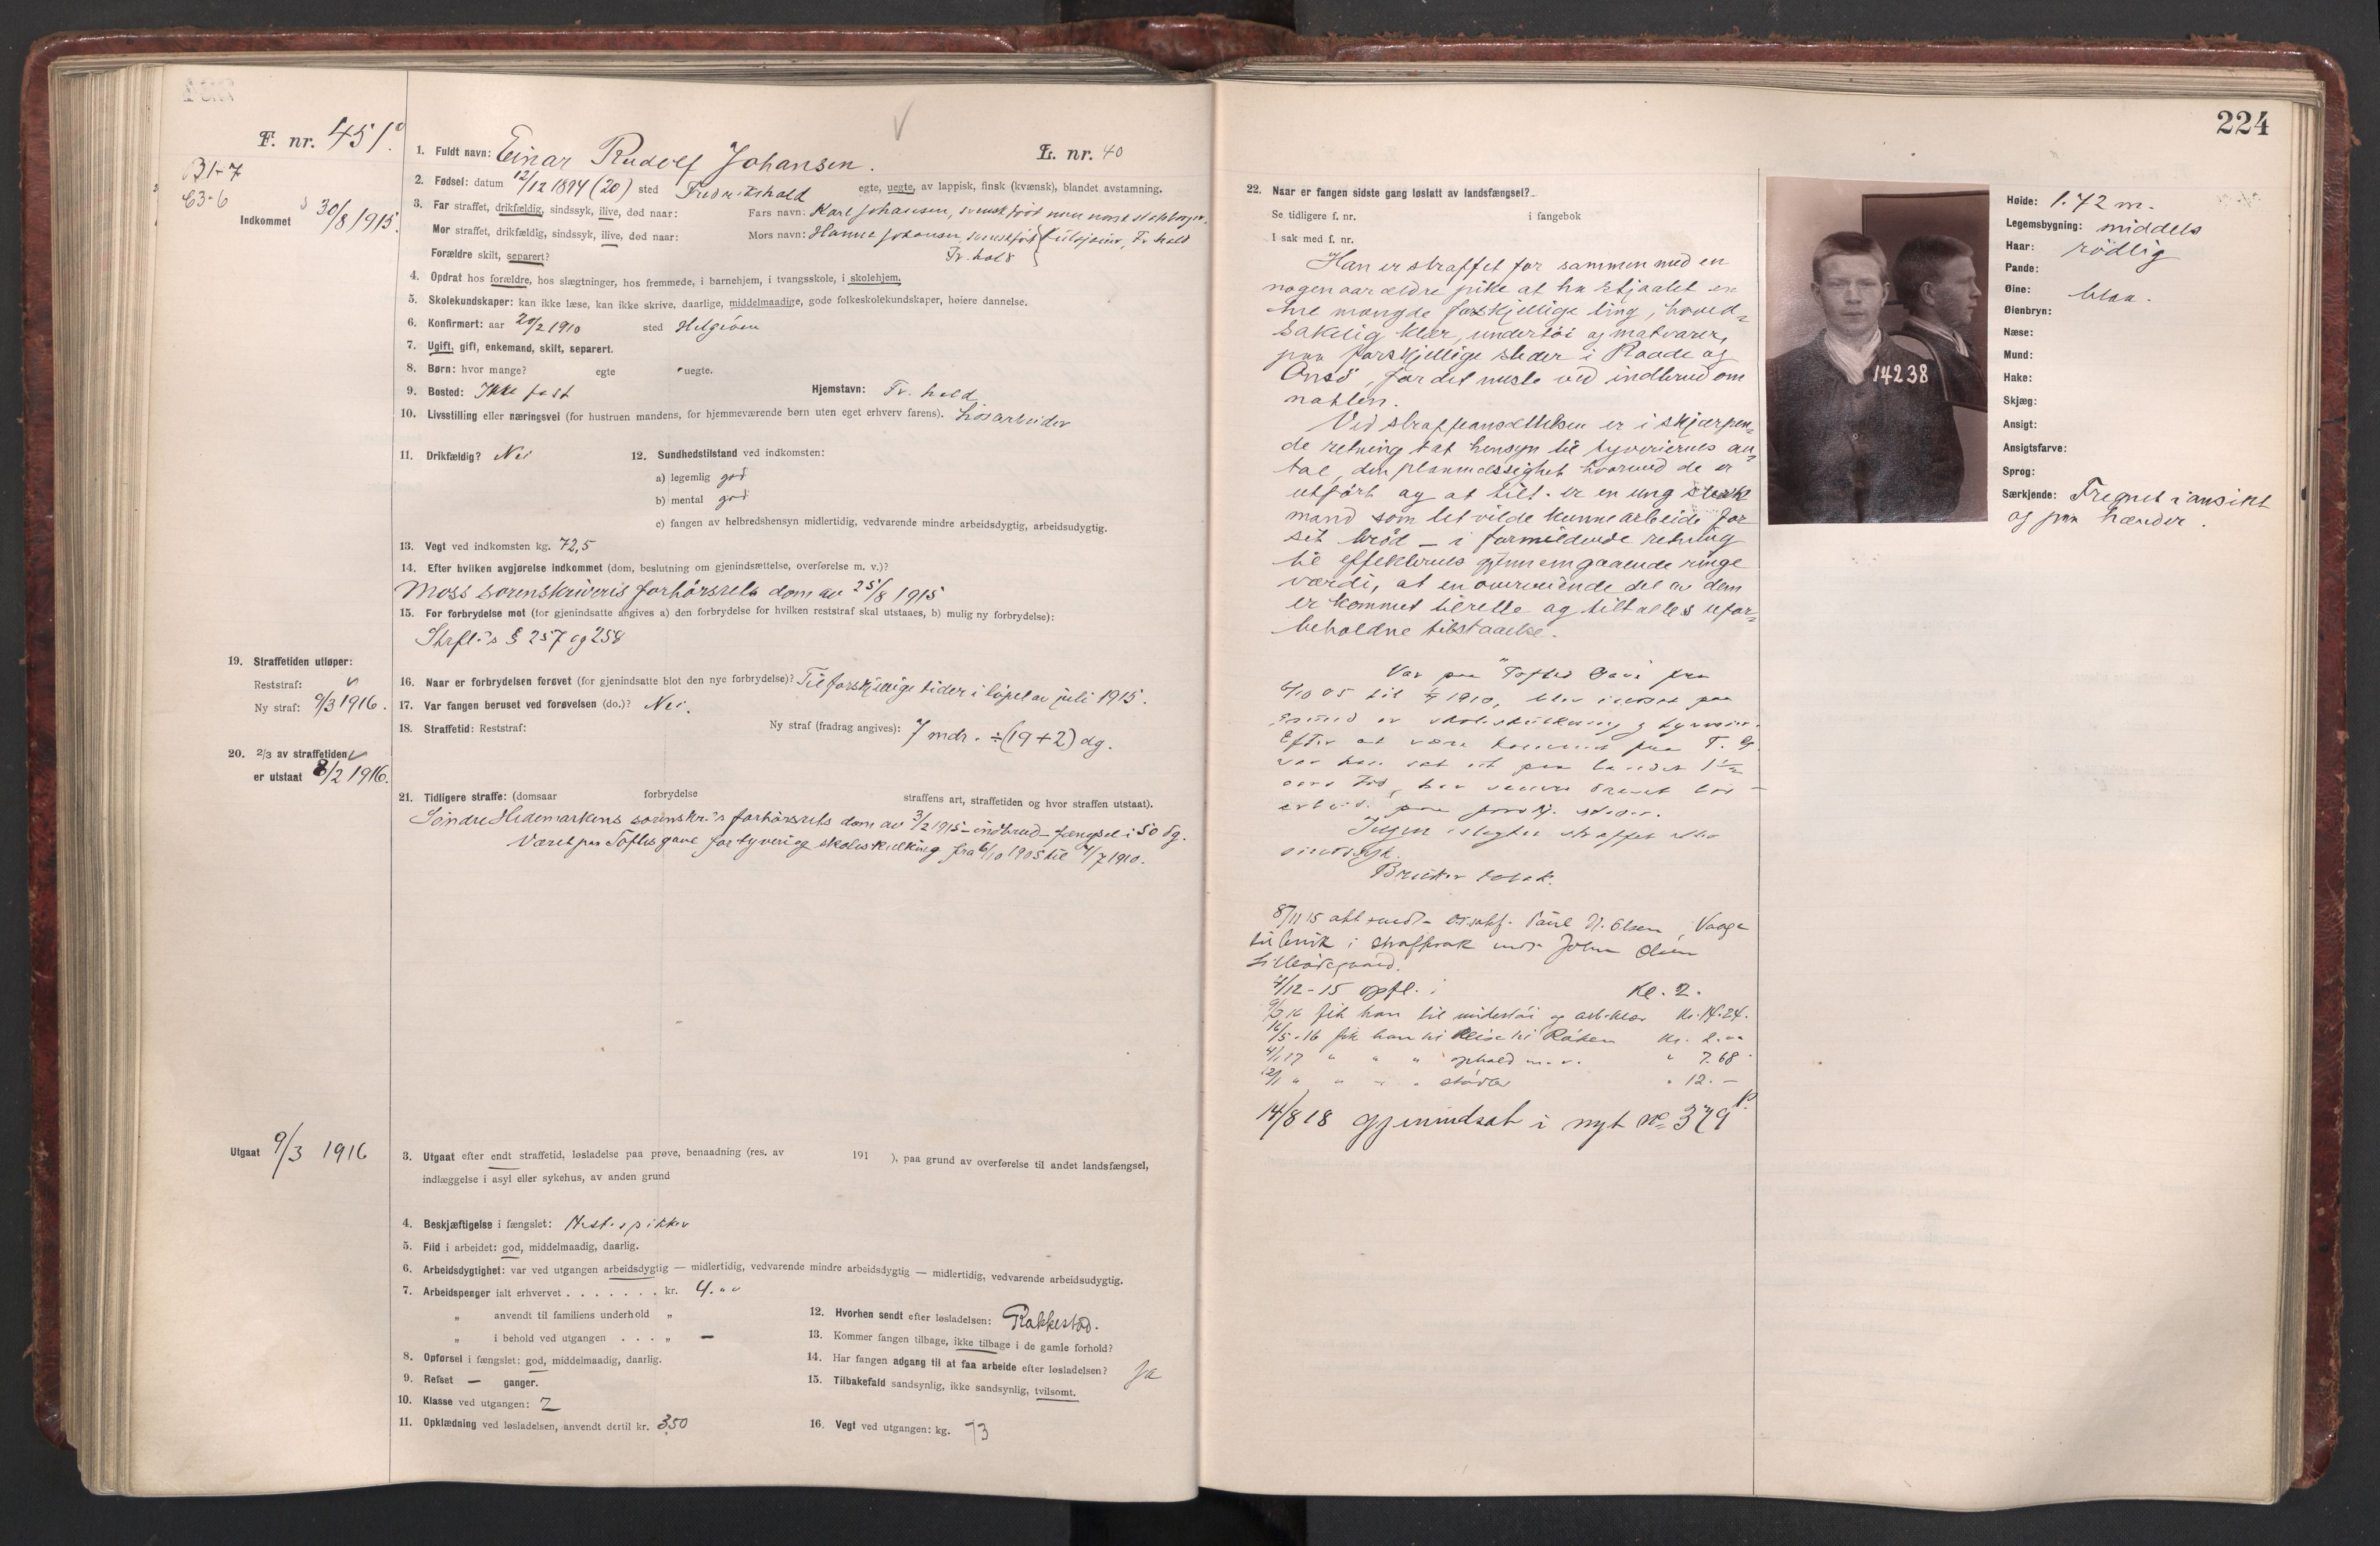 F. nr. 451
31-7
63-6
Indkommet 30/8 1915.
1. Fuldt navn: Einar Rudolf Johansen.
L. nr. 40
2. Fødsel: datum 12/12 1894 (20) sted Fredrikshald egte, uegte, av lappisk, finsk (kvænsk), blandet avstamning.
3. Far straffet, drikfældig, sindssyk, ilive, død naar: Fars navn: Karl Johansen, svensk født nu norsk statsborger.
Mor straffet, drikfældig, sindssyk, ilive, død naar: Mors navn: Hanna Johansen, svensk født Fr. hald
Forældre skilt, separert? Fr. hald
4. Opdrat hos forældre, hos slægtninger, hos fremmede, i barnehjem, i tvangsskole, i skolehjem.
5. Skolekundskaper: kan ikke læse, kan ikke skrive, daarlige, middelmaadige, gode folkeskolekundskaper, høiere dannelse.
6. Konfirmert: aar 20/2 1910 sted Helgøen
7. Ugift, gift, enkemand, skilt, separert.
8. Børn: hvor mange? egte uegte.
9. Bosted: Ikke fast Hjemstavn: Fr. hald
10. Livsstilling eller næringsvei (for hustruen mandens, for hjemmeværende børn uten eget erhverv farens). Løsarbeider
11. Drikfældig? Nei 12. Sundhedstilstand ved indkomsten:
a) legemlig god
b) mental god
c) fangen av helbredshensyn midlertidig, vedvarende mindre arbeidsdygtig, arbeidsudygtig.
13. Vegt ved indkomsten kg. 72,5
14. Efter hvilken avgjørelse indkommet (dom, beslutning om gjenindsættelse, overførelse m. v.)?
Moss sorenskriveris forhørsrets dom av 25/8 1915
15. For forbrydelse mot (for gjenindsatte angives a) den forbrydelse for hvilken reststraf skal utstaaes, b) mulig ny forbrydelse):
Strfl.'s § 257 og 258
19. Straffetiden utløper:
Reststraf:
Ny straf: 9/3 1916.
16. Naar er forbrydelsen forøvet (for gjenindsatte blot den nye forbrydelse)? Til forskjellige tider i løpet av juli 1915.
17. Var fangen beruset ved forøvelsen (do.)? Nei.
18. Straffetid: Reststraf: Ny straf (fradrag angives): 7 mdr. ÷ (19 + 2) dg.
20. 2/3 av straffetiden
er utstaat 8/2 1916.
21. Tidligere straffe: (domsaar forbrydelse straffens art, straffetiden og hvor straffen utstaat).
Søndre Hedemarkens sorenskr.'s forhørsrets dom av 3/2 1915 – indbrud – fængsel i 50 dg.
Været paa Toftes gave for tyveri og skoleskulking fra 6/10 1905 til 4/7 1910.
Utgaat 9/3 1916
3. Utgaat efter endt straffetid, løsladelse paa prøve, benaadning (res. av 191 ), paa grund av overførelse til andet landsfængsel,
indlæggelse i asyl eller sykehus, av anden grund
4. Beskjæftigelse i fængslet:
5. Flid i arbeidet: god, middelmaadig, daarlig.
6. Arbeidsdygtighet: var ved utgangen arbeidsdygtig — midlertidig, vedvarende mindre arbeidsdygtig — midlertidig, vedvarende arbeidsudygtig.
7. Arbeidspenger ialt erhvervet . . . . . . . kr. 4.
„ anvendt til familiens underhold „
„ i behold ved utgangen . . . „ —
8. Opførsel i fængslet: god, middelmaadig, daarlig.
9. Refset — ganger.
10. Klasse ved utgangen: 2
11. Opklædning ved løsladelsen, anvendt dertil kr. 3.50
12. Hvorhen sendt efter løsladelsen: Rakkestad.
13. Kommer fangen tilbage, ikke tilbage i de gamle forhold?
14. Har fangen adgang til at faa arbeide efter løsladelsen? Ja
15. Tilbakefald sandsynlig, ikke sandsynlig, tvilsomt.
16. Vegt ved utgangen: kg. 73
224
22. Naar er fangen sidste gang løslatt av landsfængsel?
Se tidligere f. nr. i fangebok
I sak med f. nr.
Han er straffet for sammen med en
nogen aar ældre pike at ha stjaalet en
hel mængde forskjellige ting, hoved-
sakelig klær, undertøi og matvarer,
paa forskjellige steder i Raade og
Onsø, for det meste ved indbrud om
natten.
Ved straffeansættelsen er i skjærpen-
de retning tat hensyn til tyveriernes an-
tal, den planmæssighet hvormed de er
utført og at tilt. er en ung sterk
mand som let vilde kunne arbeide for
sit brød – i formildende retning
til effekternes gjennemgaaende ringe
værdi, at en overveiende del av dem
er kommet tilrette og tiltaltes ufor-
beholdne tilstaaelse.
Var paa "Toftes Gave" fra
6/10 05 til 4/7 1910, blev indsat paa
grund av skoleskulkning og tyverier.
Efter at være kommet fra T. G.
var han sat ut paa landet 1 1/2
aars tid, har senere drevet løs-
arbeid paa forskj. steder.
Ingen i slegten straffet eller
sindssyk.
Bruker tobak.
8/11 15 Paul H. Olsen, Vaage
i straffesak mot John Olsen
4/12-15 opfl. i Kl. 2.
9/3 16 fik han til undertøi og arb.klær Kr. 14.24.
16/5-16 fik han til Reise til Røken Kr. 2.
4/1 17 " " " ophold m. v. " 7.68
12/1 " " " " støvler " 12.—
14/8 18 gjenindsat i nyt No 379
14238
Høide: 1.72 m.
Legemsbygning: middels
Haar: rødlig
Pande:
Øine: blaa.
Øienbryn:
Næse:
Mund:
Hake:
Skjæg:
Ansigt:
Ansigtsfarve:
Sprog:
Særkjende: Fregnet i ansikt
og paa hænder.